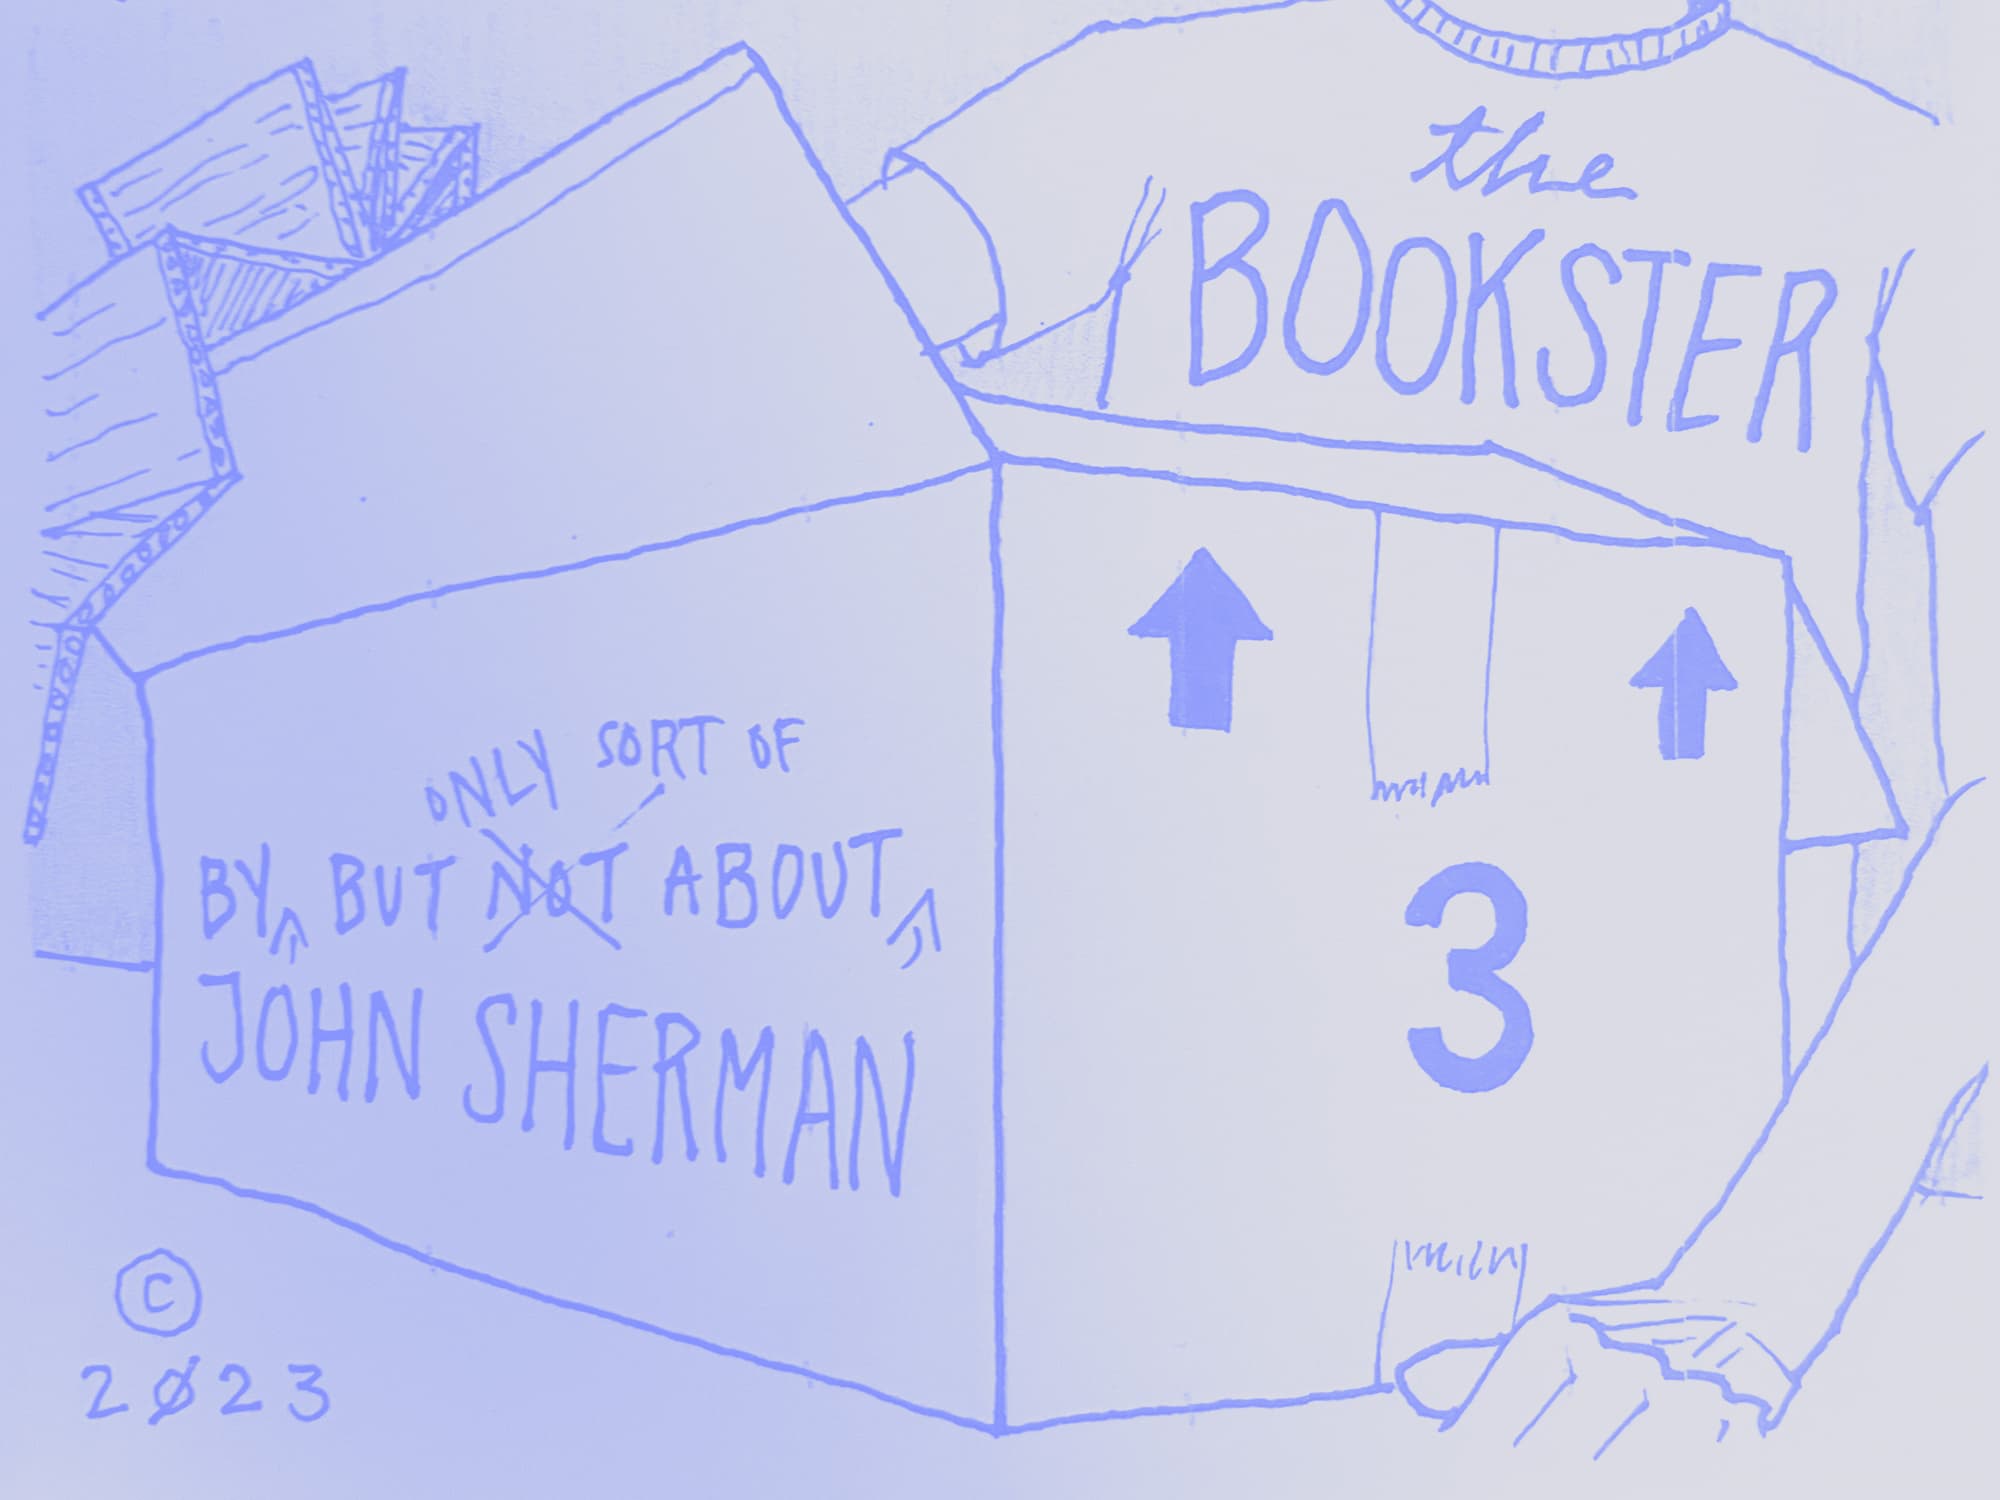 the
BOOKSTER
ONLY SORT OF
BY, BUT NOT ABOUT,
JOHN SHERMAN
3
©
2023